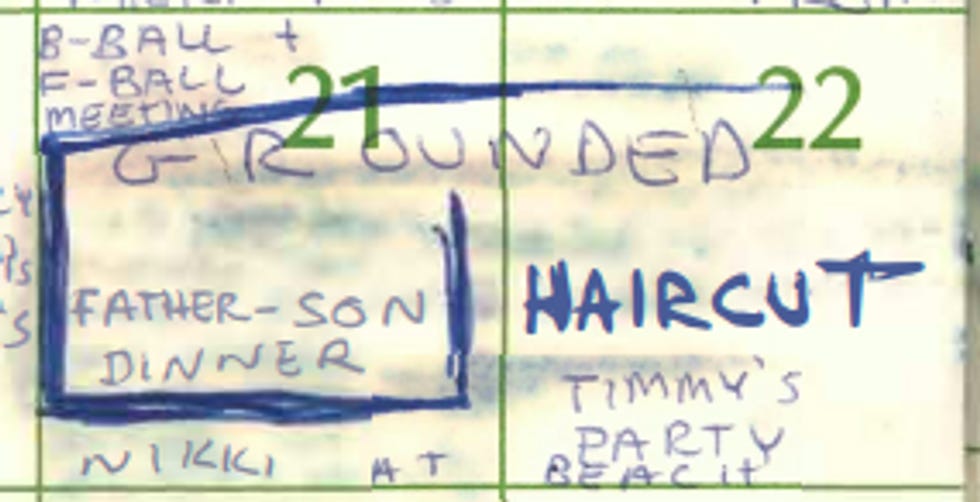 B-BALL +
F-BALL
MEETING
21
22
GROUNDED
FATHER-SON
DINNER
HAIRCUT
TIMMY'S
PARTY
NIKKI AT BEACH